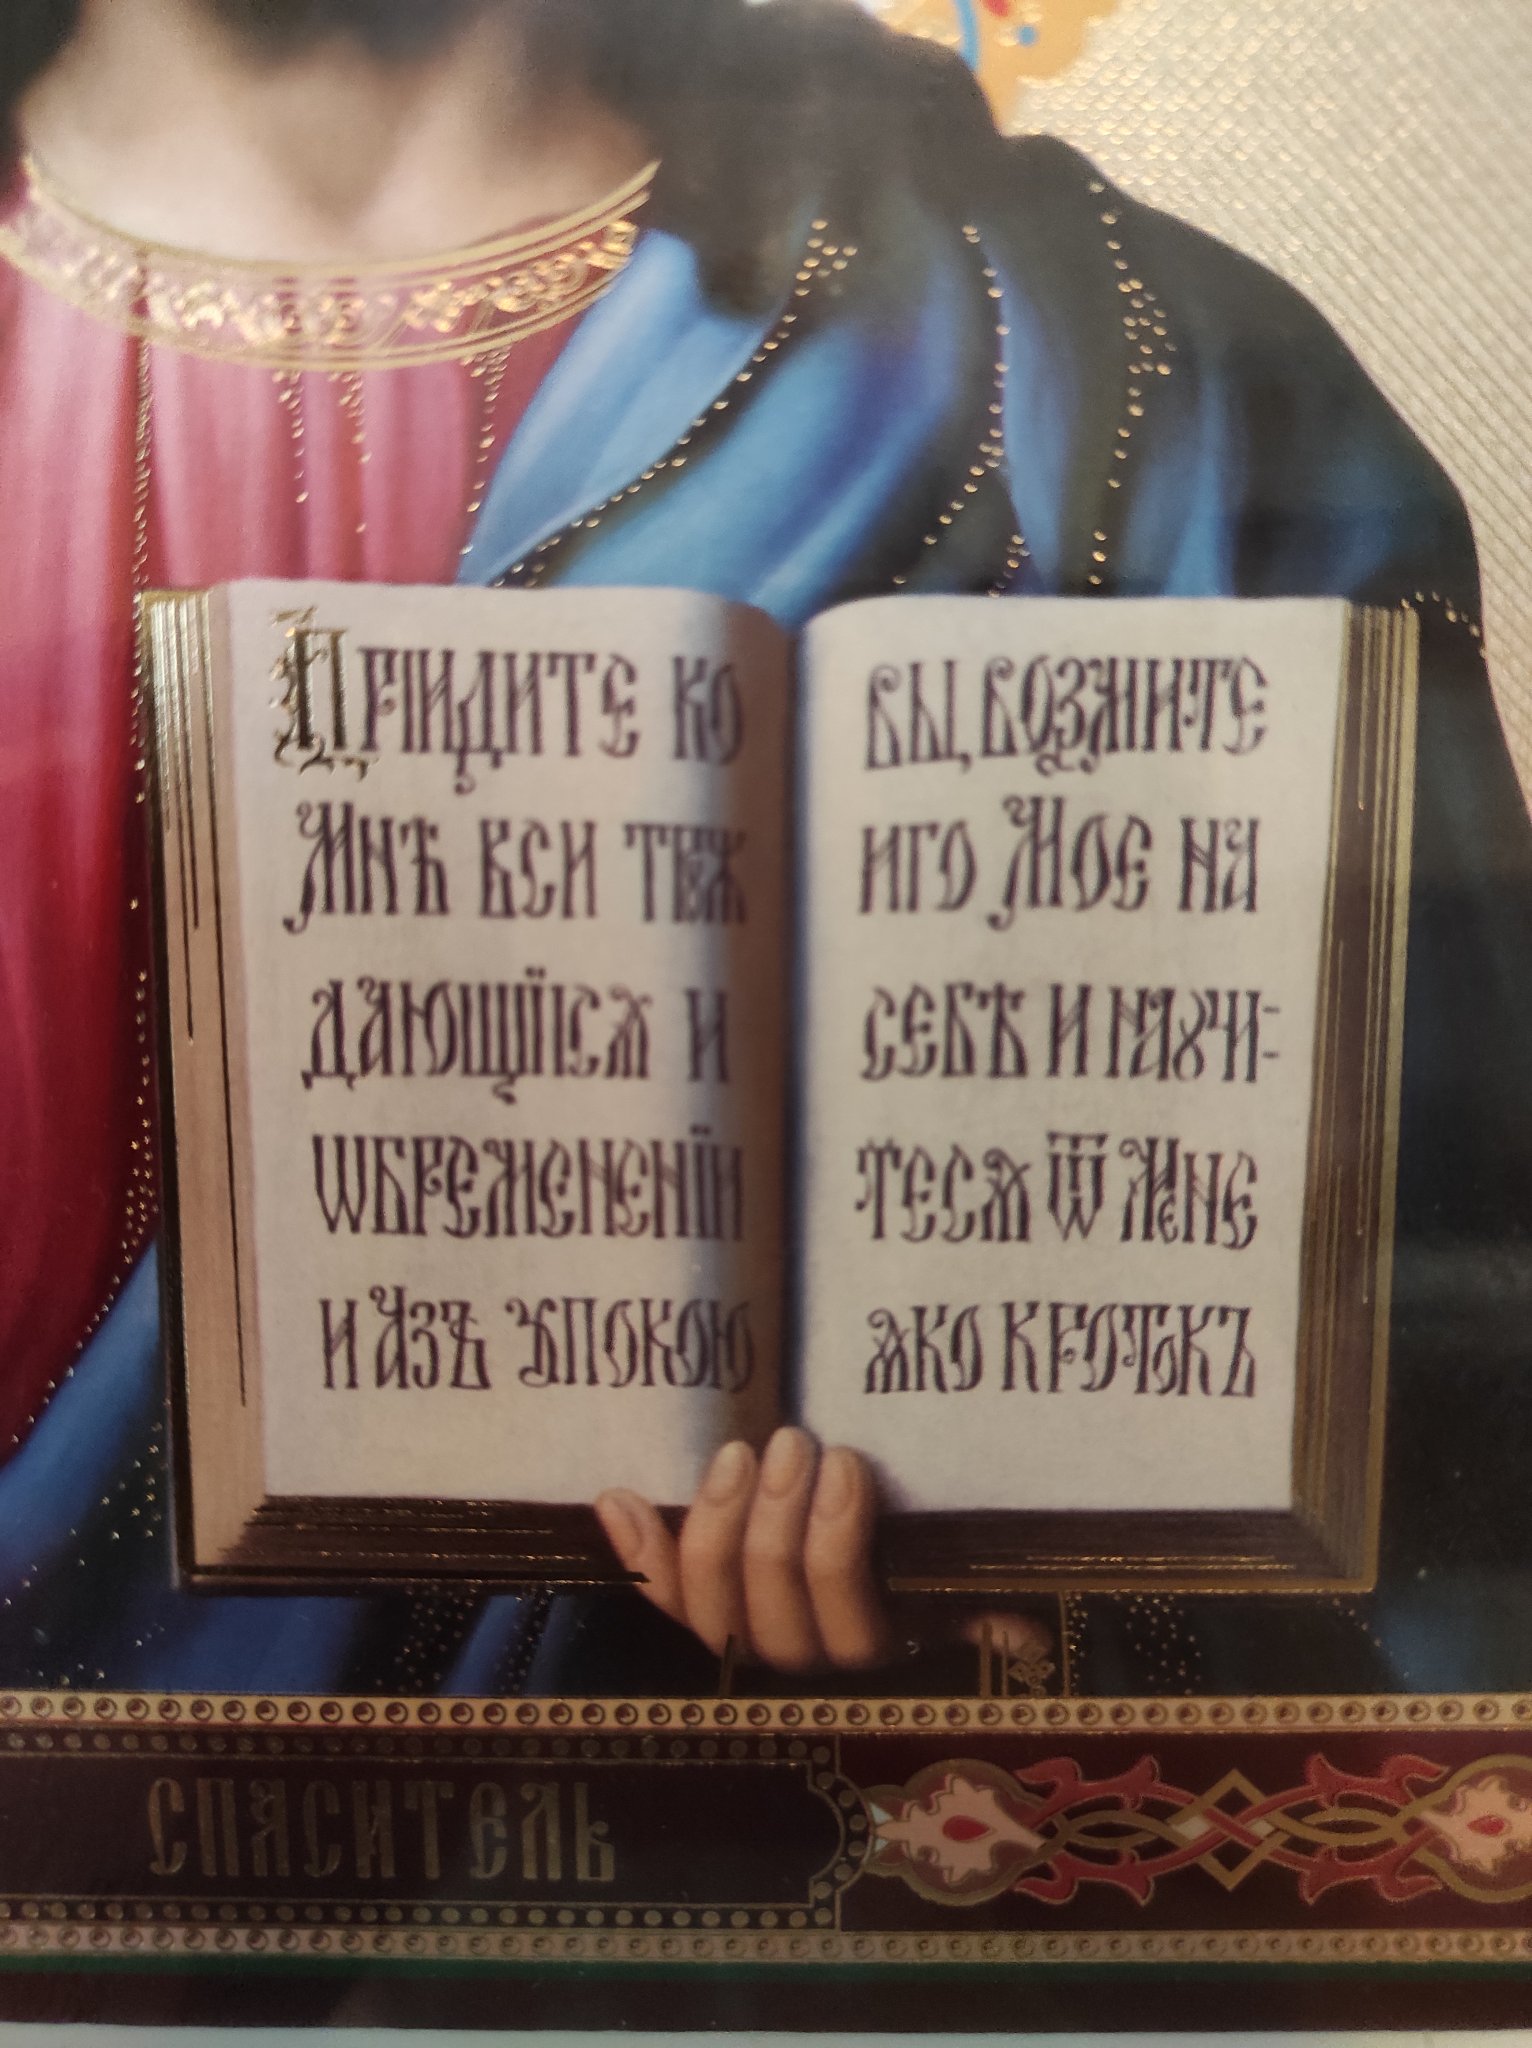 Прїидите ко
Мнѣ вси трꙋж
дающїися и
ѡбремененїи
и Азъ ꙋпокою
вы, возмите
иго Мое на
себѣ и наꙋчи-
тесѧ ѿ Мене
ѧко кротокъ
СПАСИТЕЛЬ